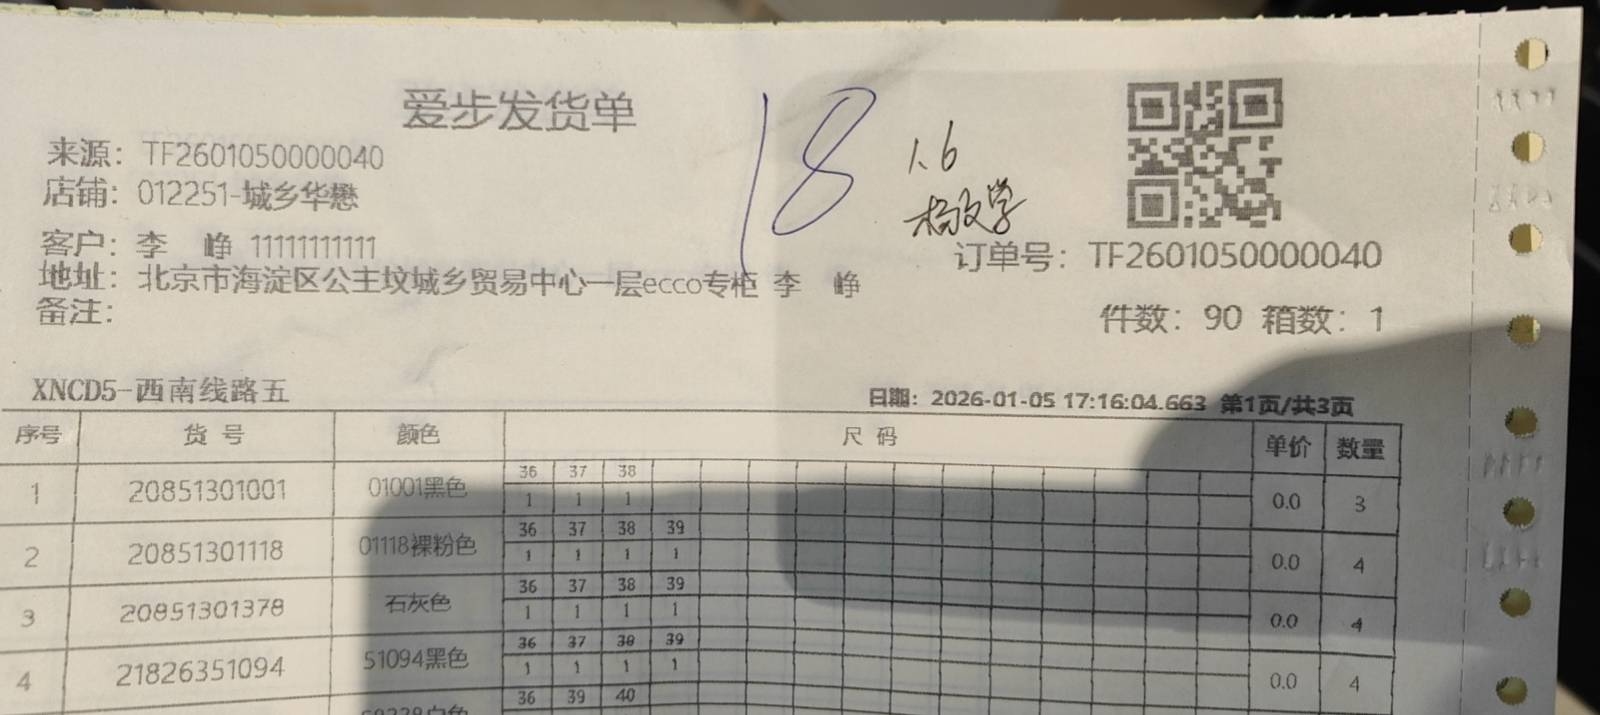 爱步发货单
18
1.6
来源: TF2601050000040
店铺: 012251-城乡华懋
客户: 李 峥 11111111111
订单号: TF2601050000040
地址: 北京市海淀区公主坟城乡贸易中心一层ecco专柜 李 峥
备注:
件数: 90 箱数: 1
XNCD5-西南线路五
日期: 2026-01-05 17:16:04.663 第1页/共3页
序号 货号 颜色 尺码 单价 数量
36 37 38
1 20851301001 01001黑色 1 1 1 0.0 3
36 37 38 39
2 20851301118 01118裸粉色 1 1 1 1 0.0 4
36 37 38 39
3 20851301378 石灰色 1 1 1 1 0.0 4
36 37 38 39
4 21826351094 51094黑色 1 1 1 1 0.0 4
36 39 40